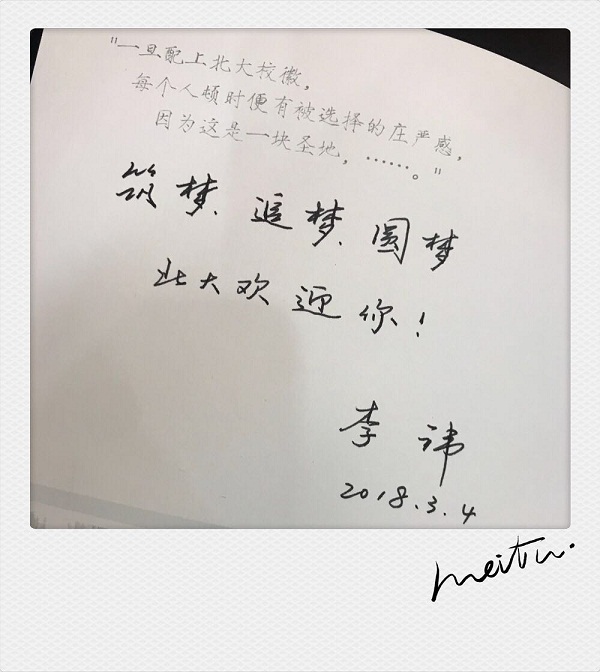 "一旦配上北大校徽，
每个人顿时便有被选择的庄严感，
因为这是一块圣地，……。"
筑梦、追梦、圆梦
北大欢迎你！
李讳
2018.3.4
meitu.